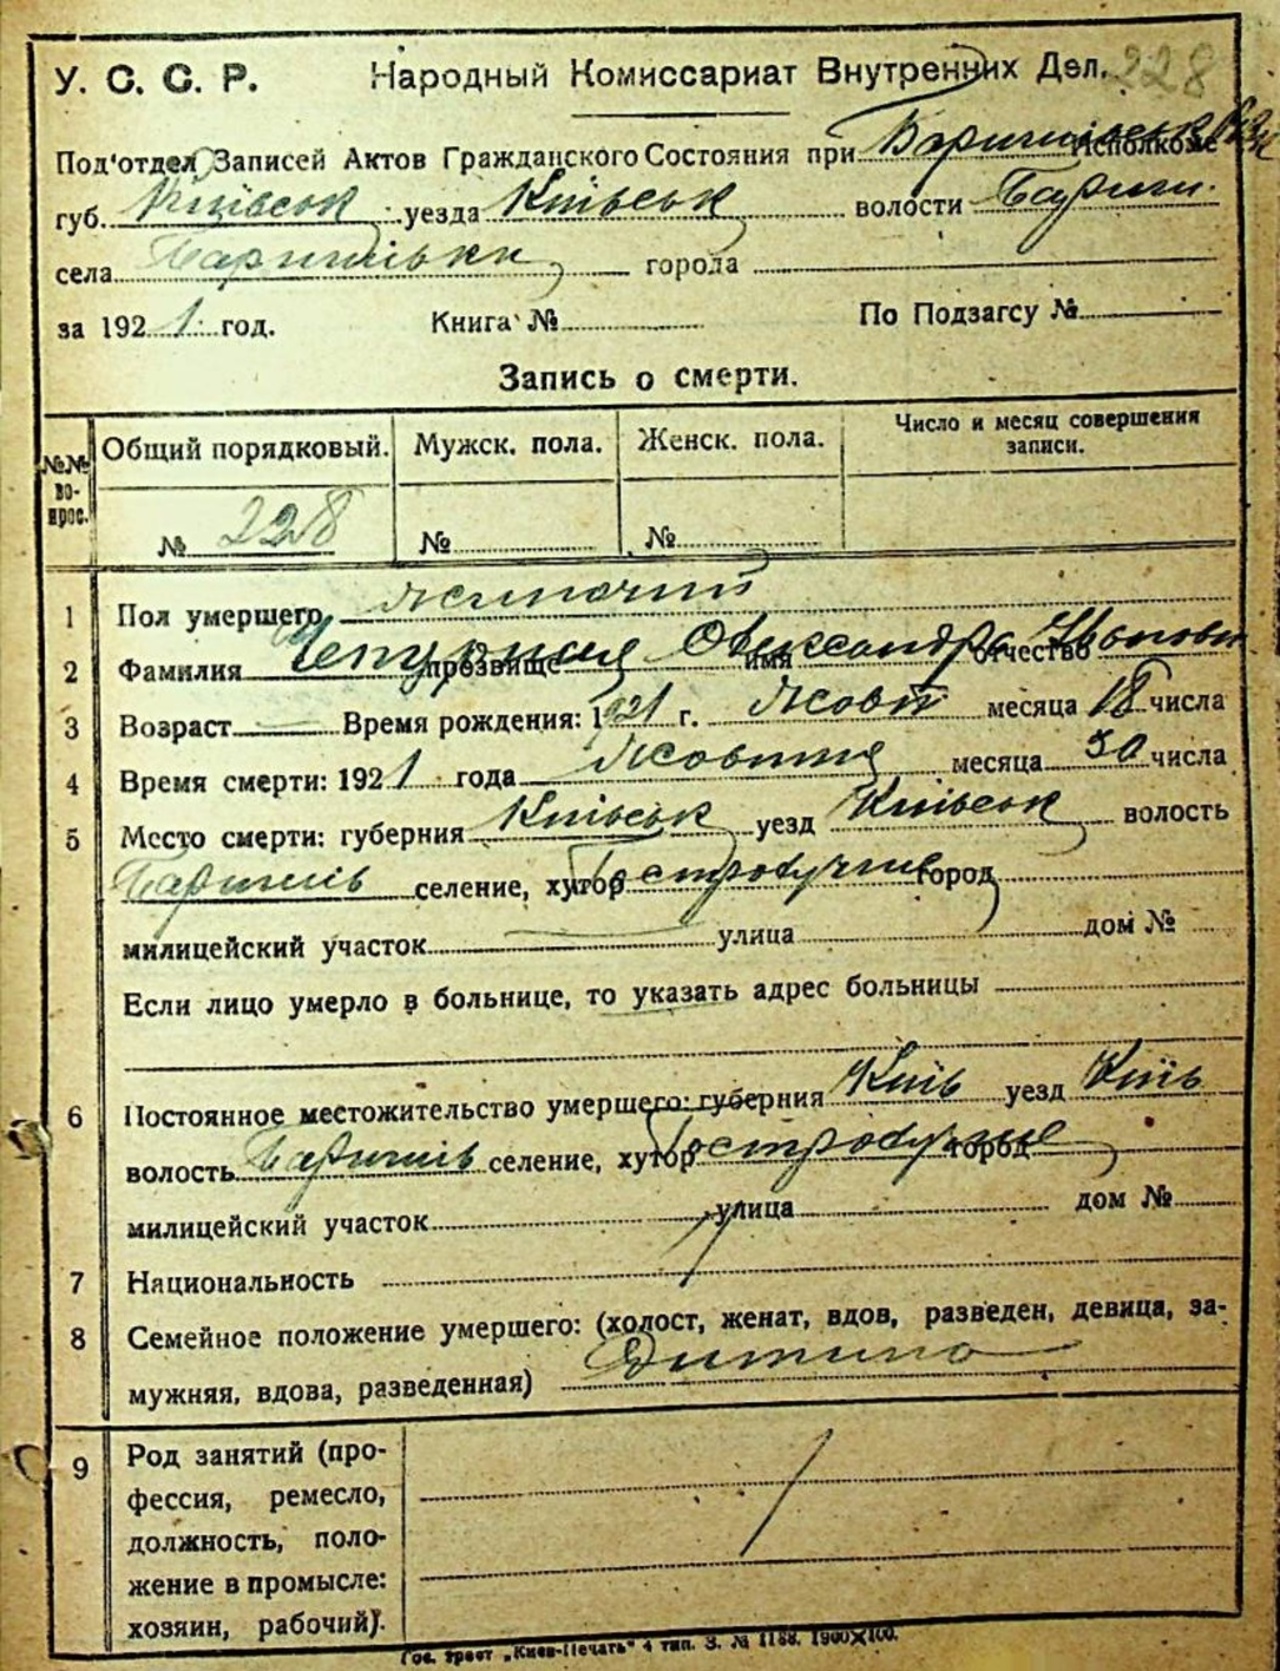 У. С. С. Р. Народный Комиссариат Внутренних Дел. 228
Под'отдел Записей Актов Гражданского Состояния при Исполкоме
губ. Київськ уезда Київськ волости Баришп.
села Баришівки города
за 1921 год. Книга № По Подзагсу №
Запись о смерти.
№№ вопрос. Общий порядковый. Мужск. пола. Женск. пола. Число и месяц совершения записи.
№ 228 № №
1 Пол умершего жиночий
2 Фамилия прозвище имя Олександра отчество Іванови
3 Возраст — Время рождения: 1921 г. Жовт месяца 18 числа
4 Время смерти: 1921 года Жовтня месяца 30 числа
5 Место смерти: губерния Київськ уезд Київськ волость
Баришів селение, хутор город
милицейский участок улица дом №
Если лицо умерло в больнице, то указать адрес больницы
6 Постоянное местожительство умершего: губерния Київ уезд Київ
волость Баришів селение, хутор город
милицейский участок улица дом №
7 Национальность
8 Семейное положение умершего: (холост, женат, вдов, разведен, девица, за-
мужняя, вдова, разведенная) Дитина
9 Род занятий (про-
фессия, ремесло,
должность, поло-
жение в промысле:
хозяин, рабочий).
Гос. трест „Киев-Печать" 4 тип. З. № 1188. 1900×100.